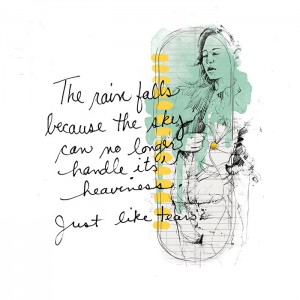 The rain falls
because the sky
can no longer
handle its
heaviness.
Just like tears